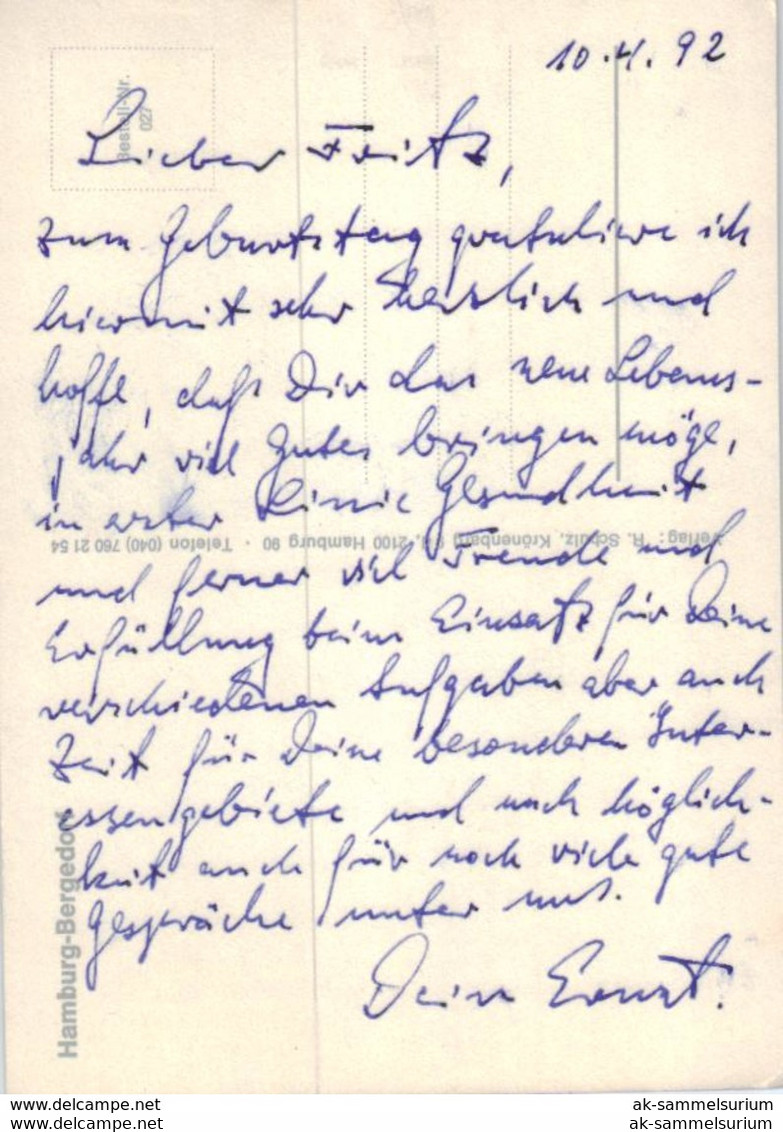 10.4.92
Bestell-Nr.
027
Lieber Fritz,
zum Geburtstag gratuliere ich
hiermit sehr herzlich und
hoffe, daß Dir das neue Lebens-
jahr viel Gutes bringen möge,
in erster Linie Gesundheit
Verlag: R. Schulz, Krönenbarg 2100 Hamburg 90 · Telefon (040) 760 21 54
und ferner viel Freude und
Erfüllung beim Einsatz für Deine
verschiedenen Aufgaben aber auch
Zeit für Deine besonderen Inter-
essengebiete und nach Möglich-
keit auch für noch viele gute
Gespräche unter uns.
Dein Ernst.
Hamburg-Bergedorf
ak-sammelsurium.com
ak-sammelsurium
ak-sammelsurium.com
ak-sammelsurium